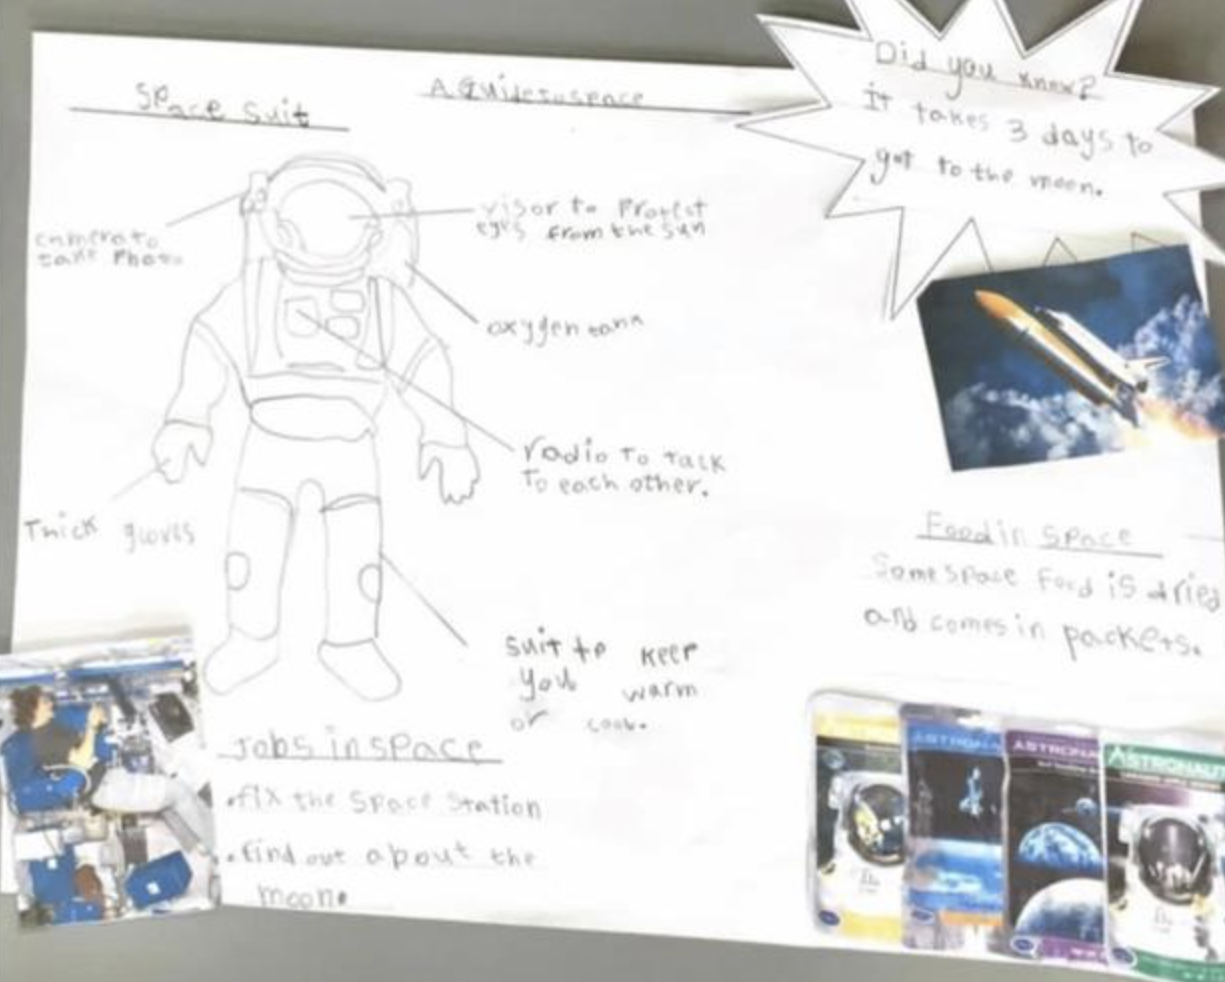 Space Suit
A Guide to space
Did you know?
it takes 3 days to
get to the moon.
camera to
take Photo
visor to Protect
eyes from the sun
oxygen tank
radio to talk
to each other.
Thick gloves
suit to keep
you warm
or cool.
Food in space
Some space Food is dried
and comes in packets.
Jobs in space
• fix the Space Station
• find out about the
moon.
ASTRONA
ASTRONA
ASTRONAUT